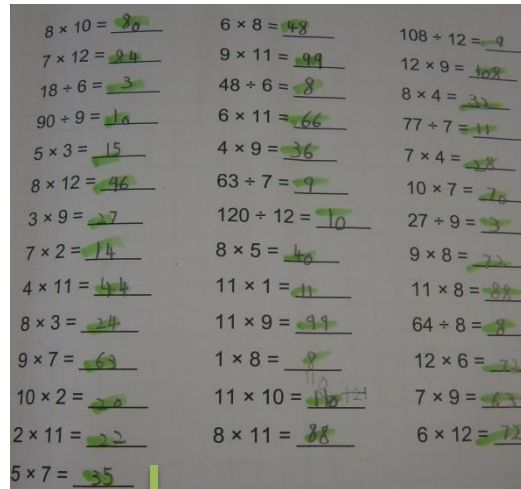 8 × 10 = 80
7 × 12 = 84
18 ÷ 6 = 3
90 ÷ 9 = 10
5 × 3 = 15
8 × 12 = 96
3 × 9 = 27
7 × 2 = 14
4 × 11 = 44
8 × 3 = 24
9 × 7 = 63
10 × 2 = 20
2 × 11 = 22
5 × 7 = 35
6 × 8 = 48
9 × 11 = 99
48 ÷ 6 = 8
6 × 11 = 66
4 × 9 = 36
63 ÷ 7 = 9
120 ÷ 12 = 10
8 × 5 = 40
11 × 1 = 11
11 × 9 = 99
1 × 8 = 8
110
11 × 10 = 110 121
8 × 11 = 88
108 ÷ 12 = 9
12 × 9 = 108
8 × 4 = 32
77 ÷ 7 = 11
7 × 4 = 28
10 × 7 = 70
27 ÷ 9 = 3
9 × 8 = 72
11 × 8 = 88
64 ÷ 8 = 8
12 × 6 = 72
7 × 9 = 63
6 × 12 = 72